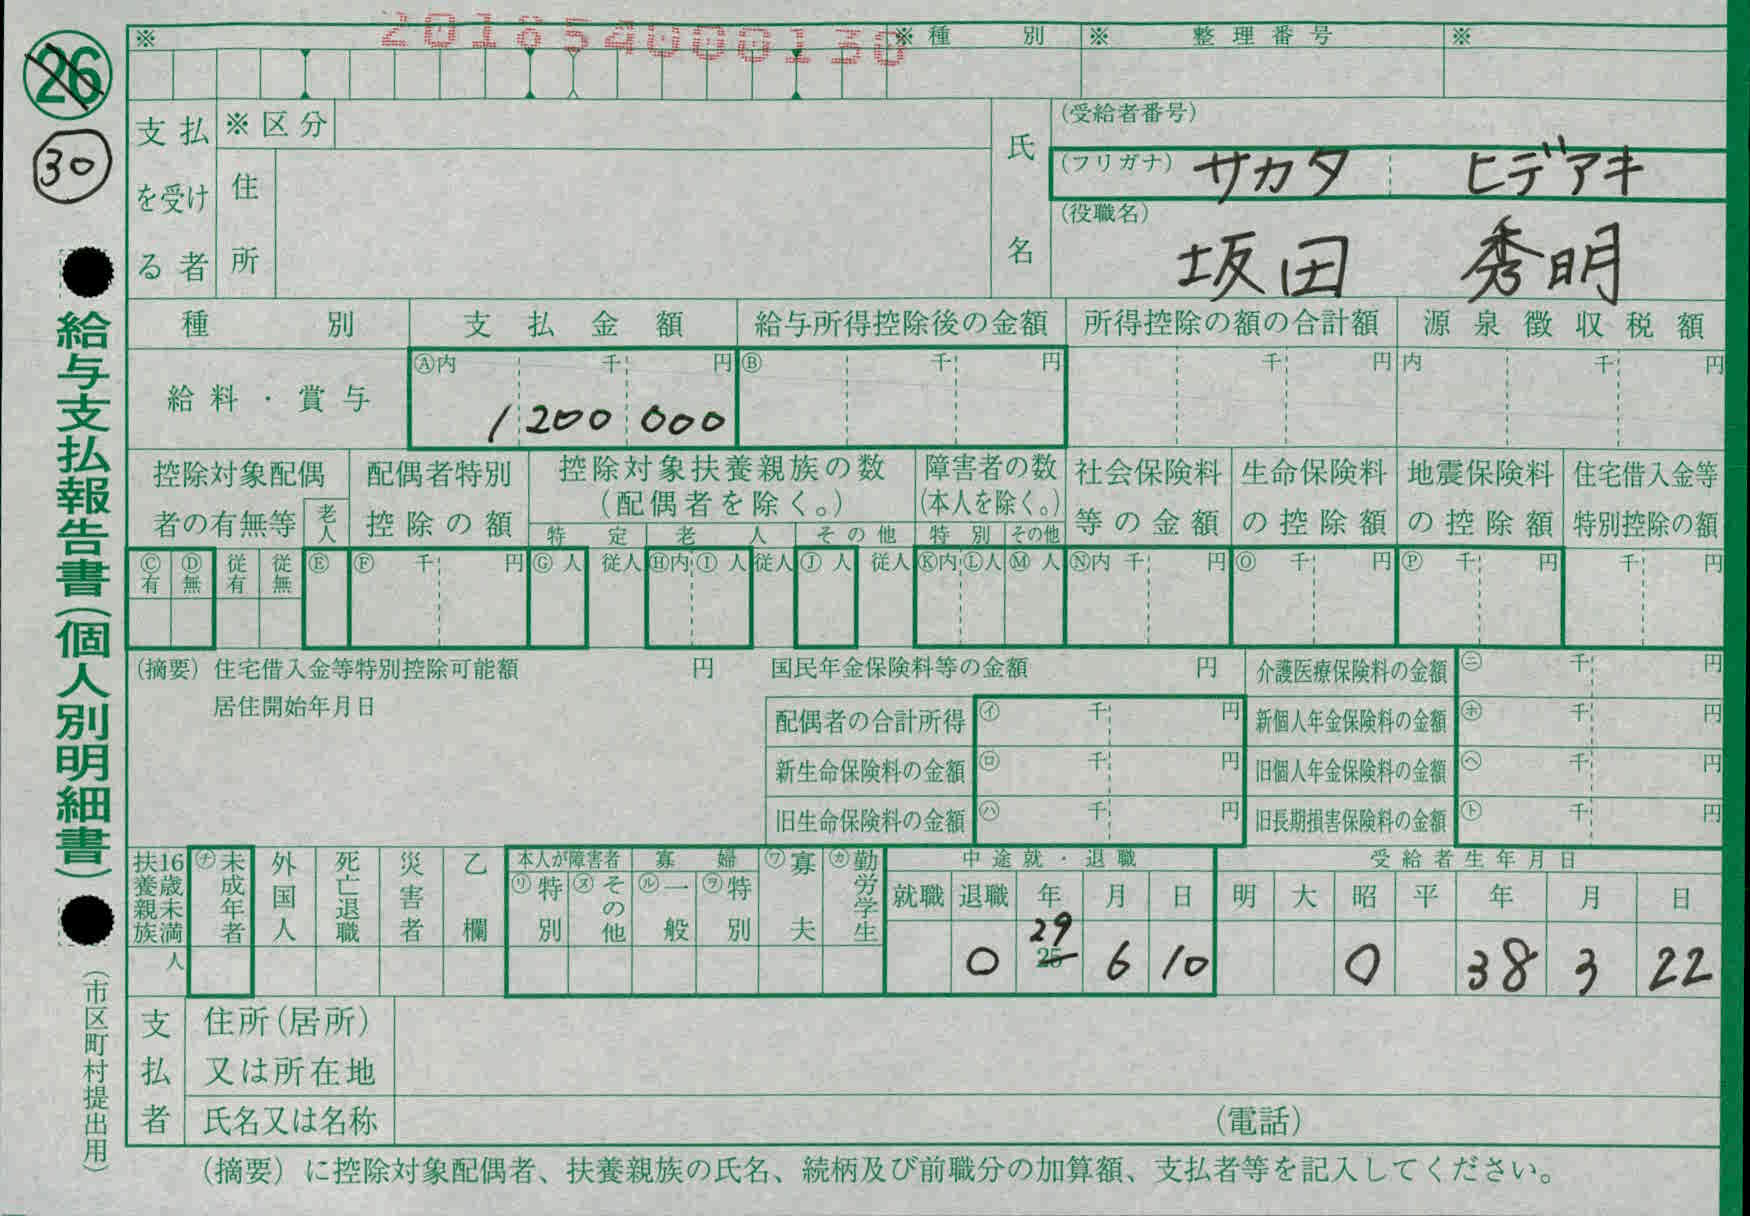 201854000130
26
30
※
※ 種 別
※ 整理番号
※
支払を受ける者
※区分
住所
氏名
(受給者番号)
(フリガナ) サカタ ヒデアキ
(役職名)
坂田 秀明
種別 支払金額 給与所得控除後の金額 所得控除の額の合計額 源泉徴収税額
給料・賞与
Ⓐ内 千 円 Ⓑ 千 円 千 円 内 千 円
1 200 000
控除対象配偶者の有無等 老人
配偶者特別控除の額
控除対象扶養親族の数(配偶者を除く。)
特定 老人 その他
障害者の数(本人を除く。)
特別 その他
社会保険料等の金額
生命保険料の控除額
地震保険料の控除額
住宅借入金等特別控除の額
Ⓒ有 Ⓓ無 従有 従無 Ⓔ Ⓕ 千 円 Ⓖ 人 従人 Ⓗ内 Ⓘ 人 従人 Ⓙ 人 従人 Ⓚ内 Ⓛ人 Ⓜ 人 Ⓝ内 千 円 Ⓞ 千 円 Ⓟ 千 円 千 円
(摘要) 住宅借入金等特別控除可能額 円 国民年金保険料等の金額 円
居住開始年月日
配偶者の合計所得 ㋑ 千 円
新生命保険料の金額 ㋺ 千 円
旧生命保険料の金額 ㋩ 千 円
介護医療保険料の金額 ㊂ 千 円
新個人年金保険料の金額 ㋭ 千 円
旧個人年金保険料の金額 ㋬ 千 円
旧長期損害保険料の金額 ㋣ 千 円
16歳未満扶養親族 人
㋠未成年者
外国人
死亡退職
災害者
乙欄
本人が障害者
㋷特別 ㋦その他
寡婦
㋸一般 ㋾特別
㋻寡夫
㋕勤労学生
中途就・退職
就職 退職 年 月 日
受給者生年月日
明 大 昭 平 年 月 日
29
0 25 6 10 0 38 3 22
支払者
住所(居所)又は所在地
氏名又は名称 (電話)
(摘要)に控除対象配偶者、扶養親族の氏名、続柄及び前職分の加算額、支払者等を記入してください。
給与支払報告書(個人別明細書)
(市区町村提出用)